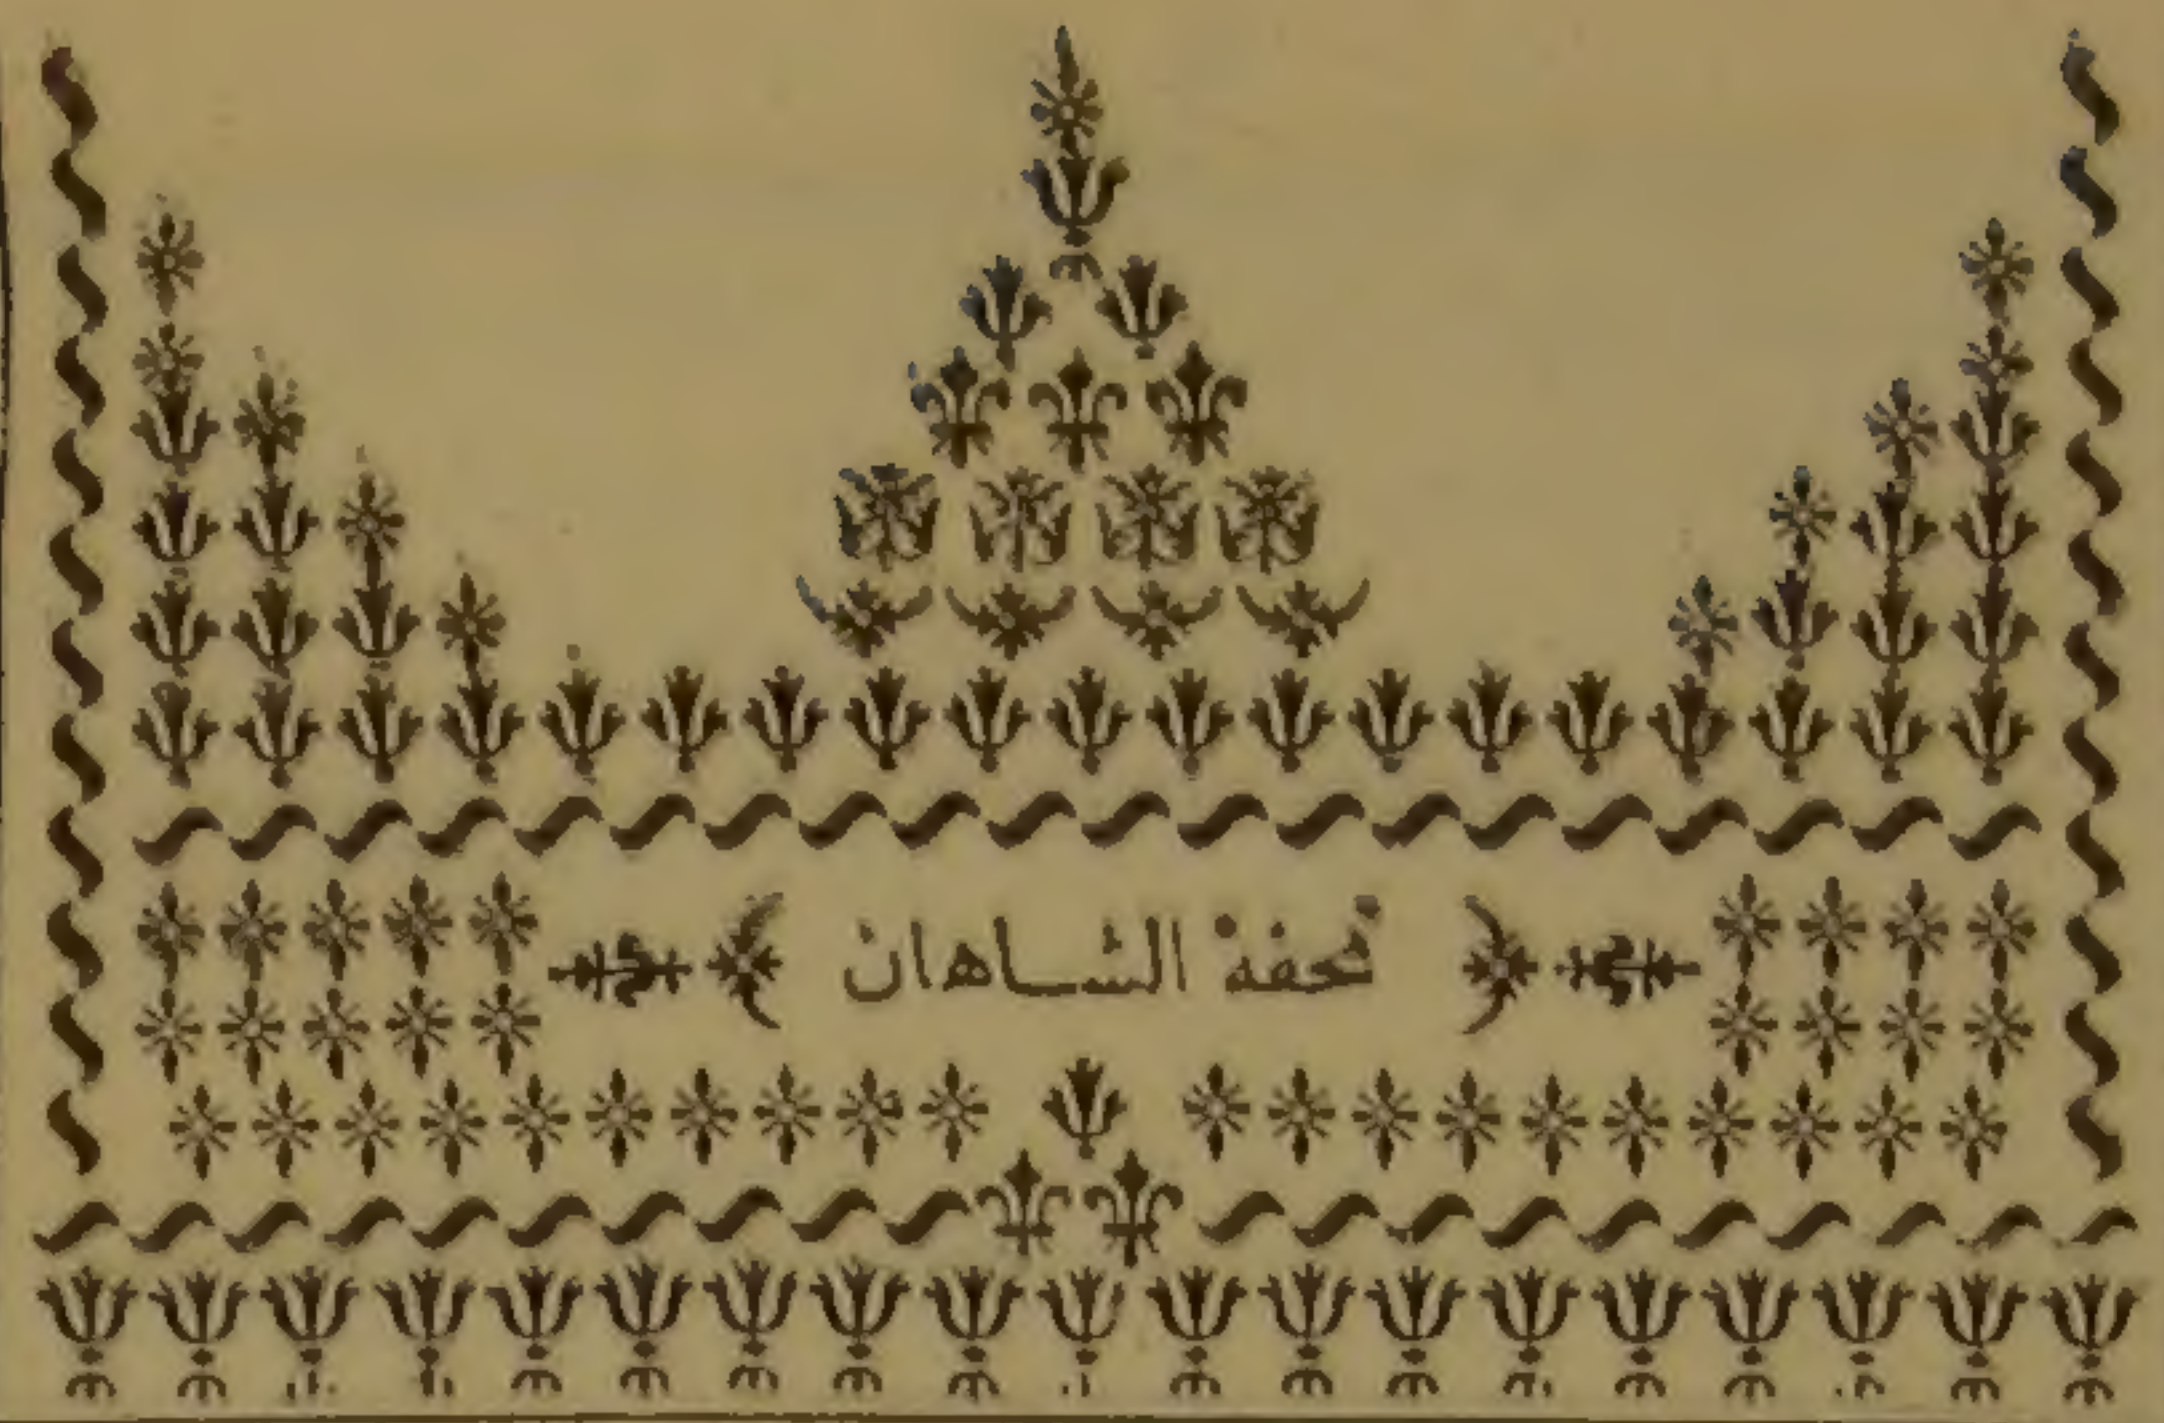 تحفة الشاهان